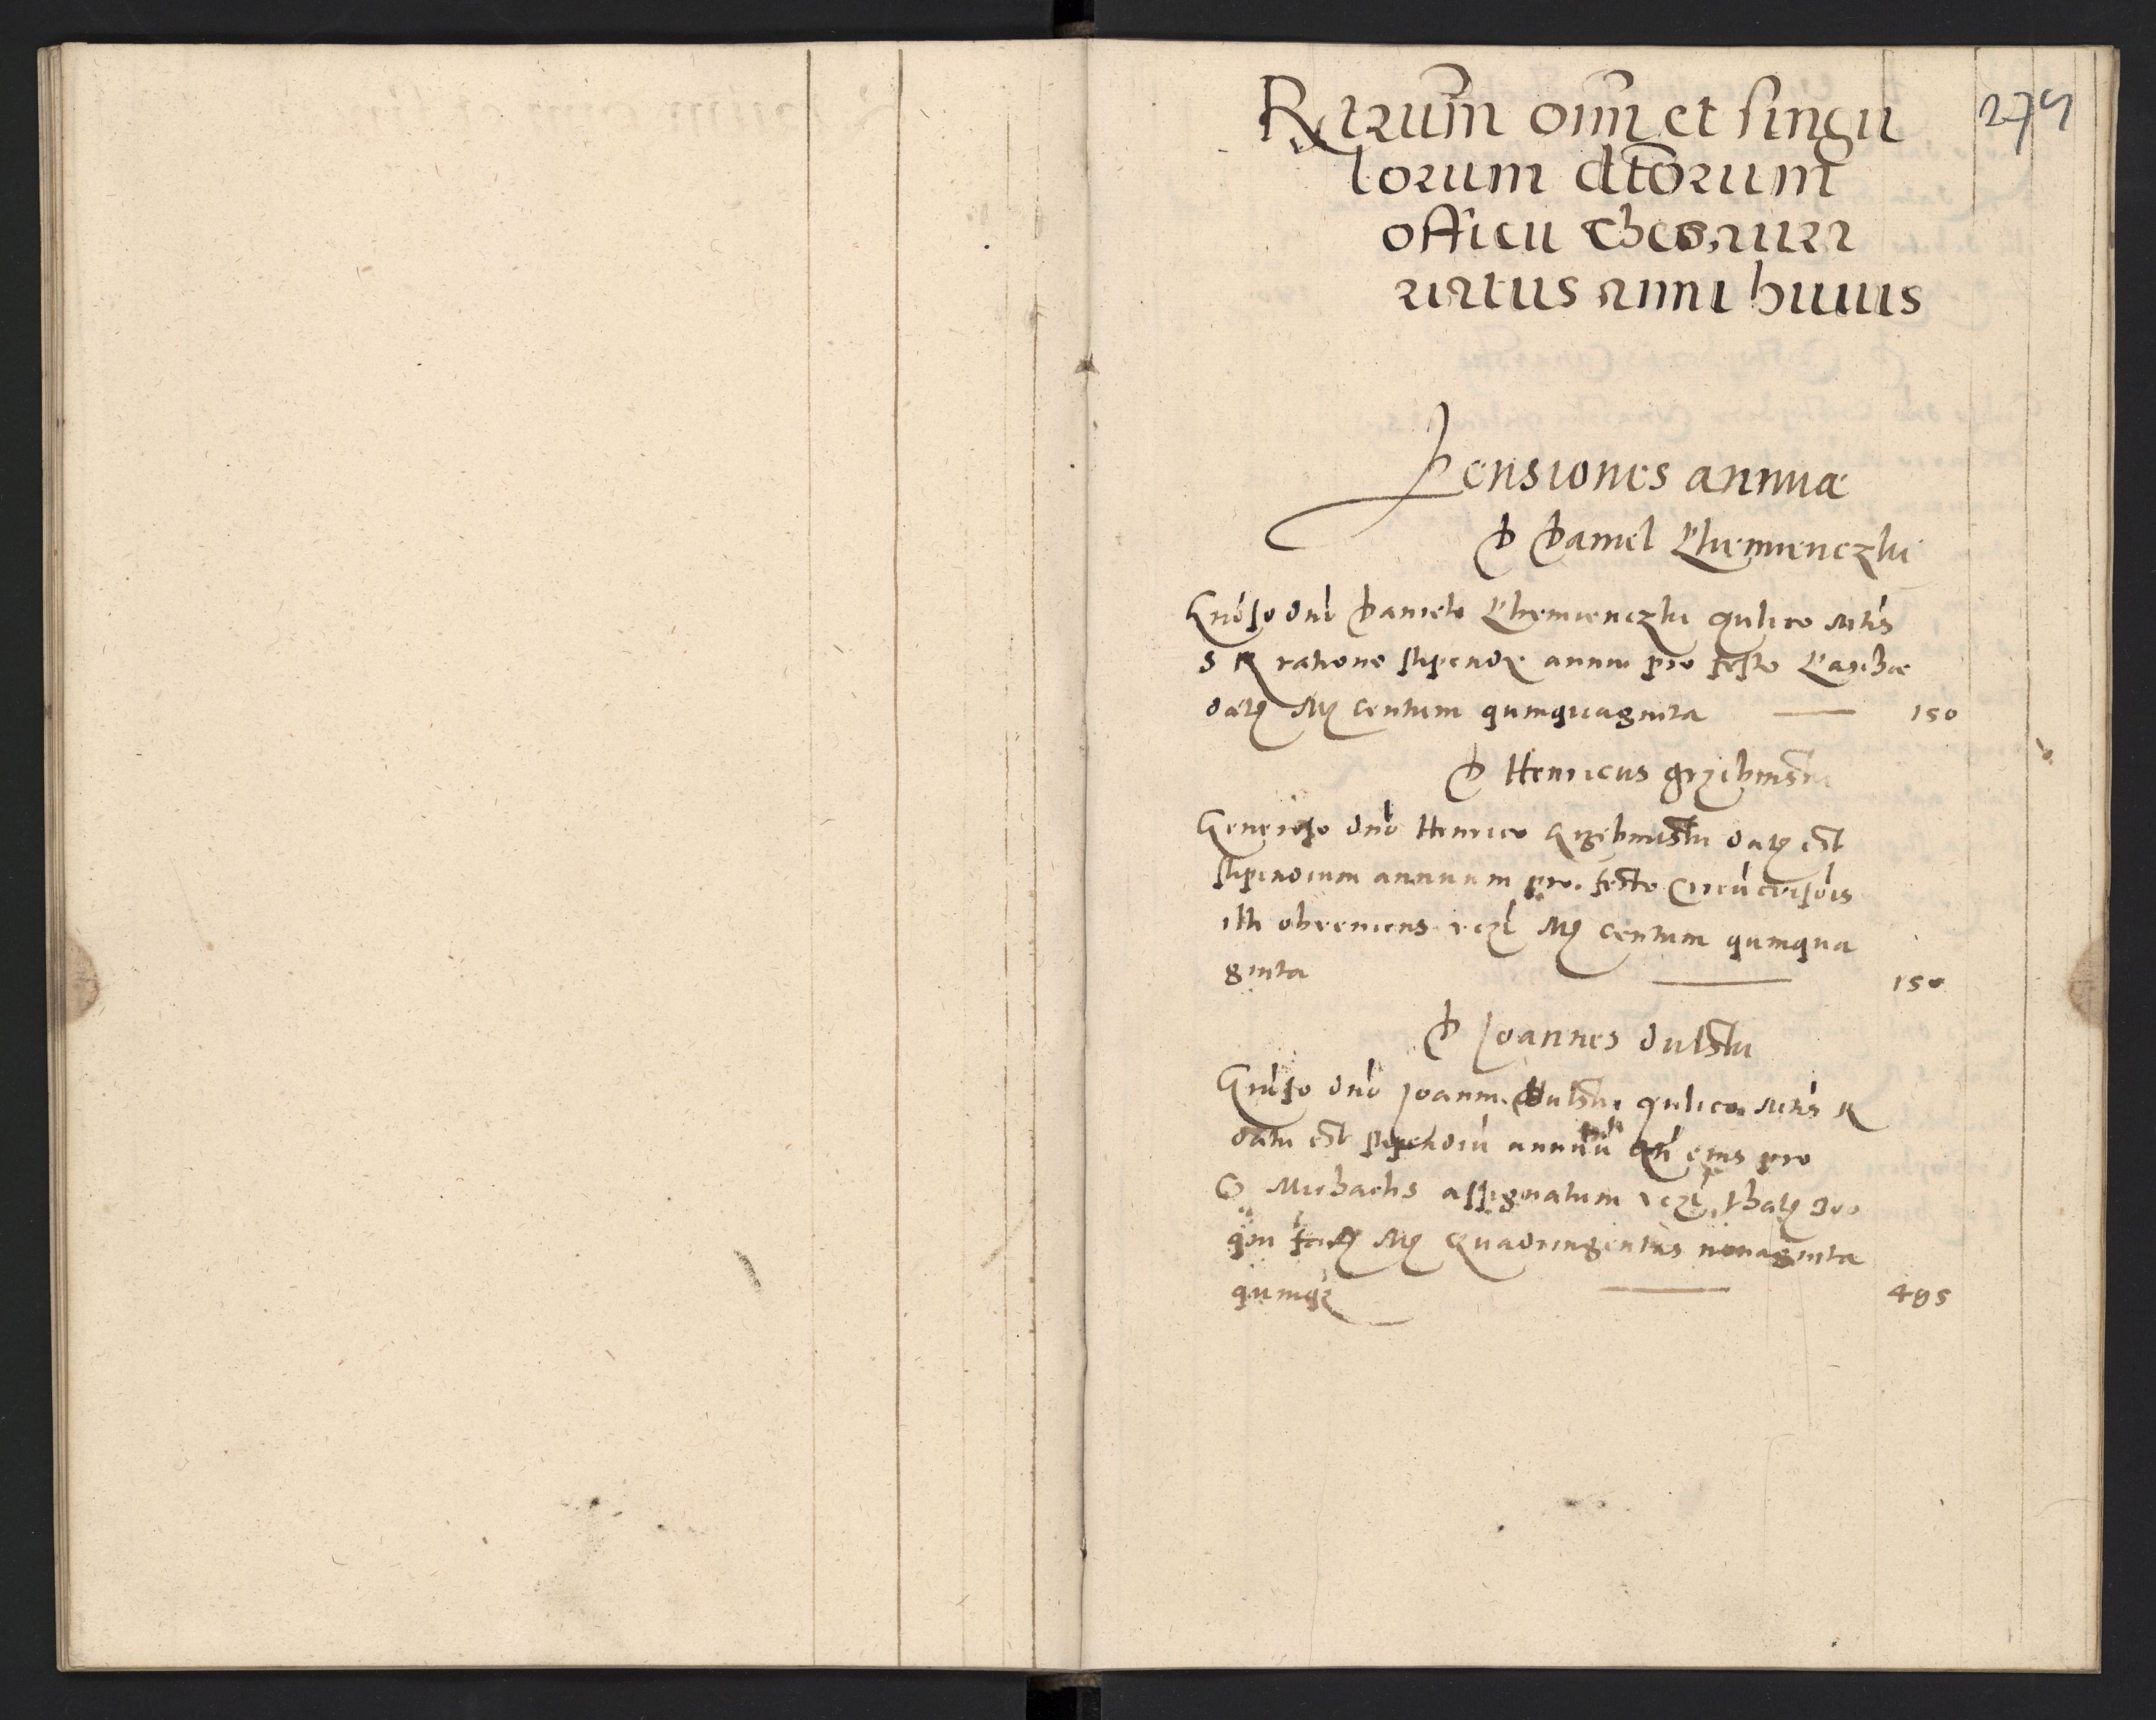 Rerum oim et singu
lorum dtorum
officii Thesaurar
riatus anni huius
279
Pensiones annuæ
D Daniel Chemienczki
Gnoso dno Danieli Chemienczki aulico Mtis
S R ratione stipendy annui pro festo
datę Mę centum quinquaginta — 150
D Henricus grzibinski
Generoso dno Henrico Grzibinski datę est
stipendium annuum pro festo Circucisiois
illi obveniens Mę centum quinqua
ginta — 150
D Joannes dulski
Gnoso dno Joanni Dulski aulico Mtis R
datu est stipendiu annuu eius pro
S Michaelis assignatum
Mę Quadringentas nonaginta
quinqz — 495